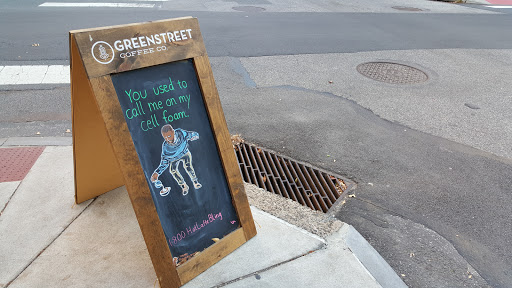 GREENSTREET
COFFEE CO.
You used to
call me on my
cell foam.